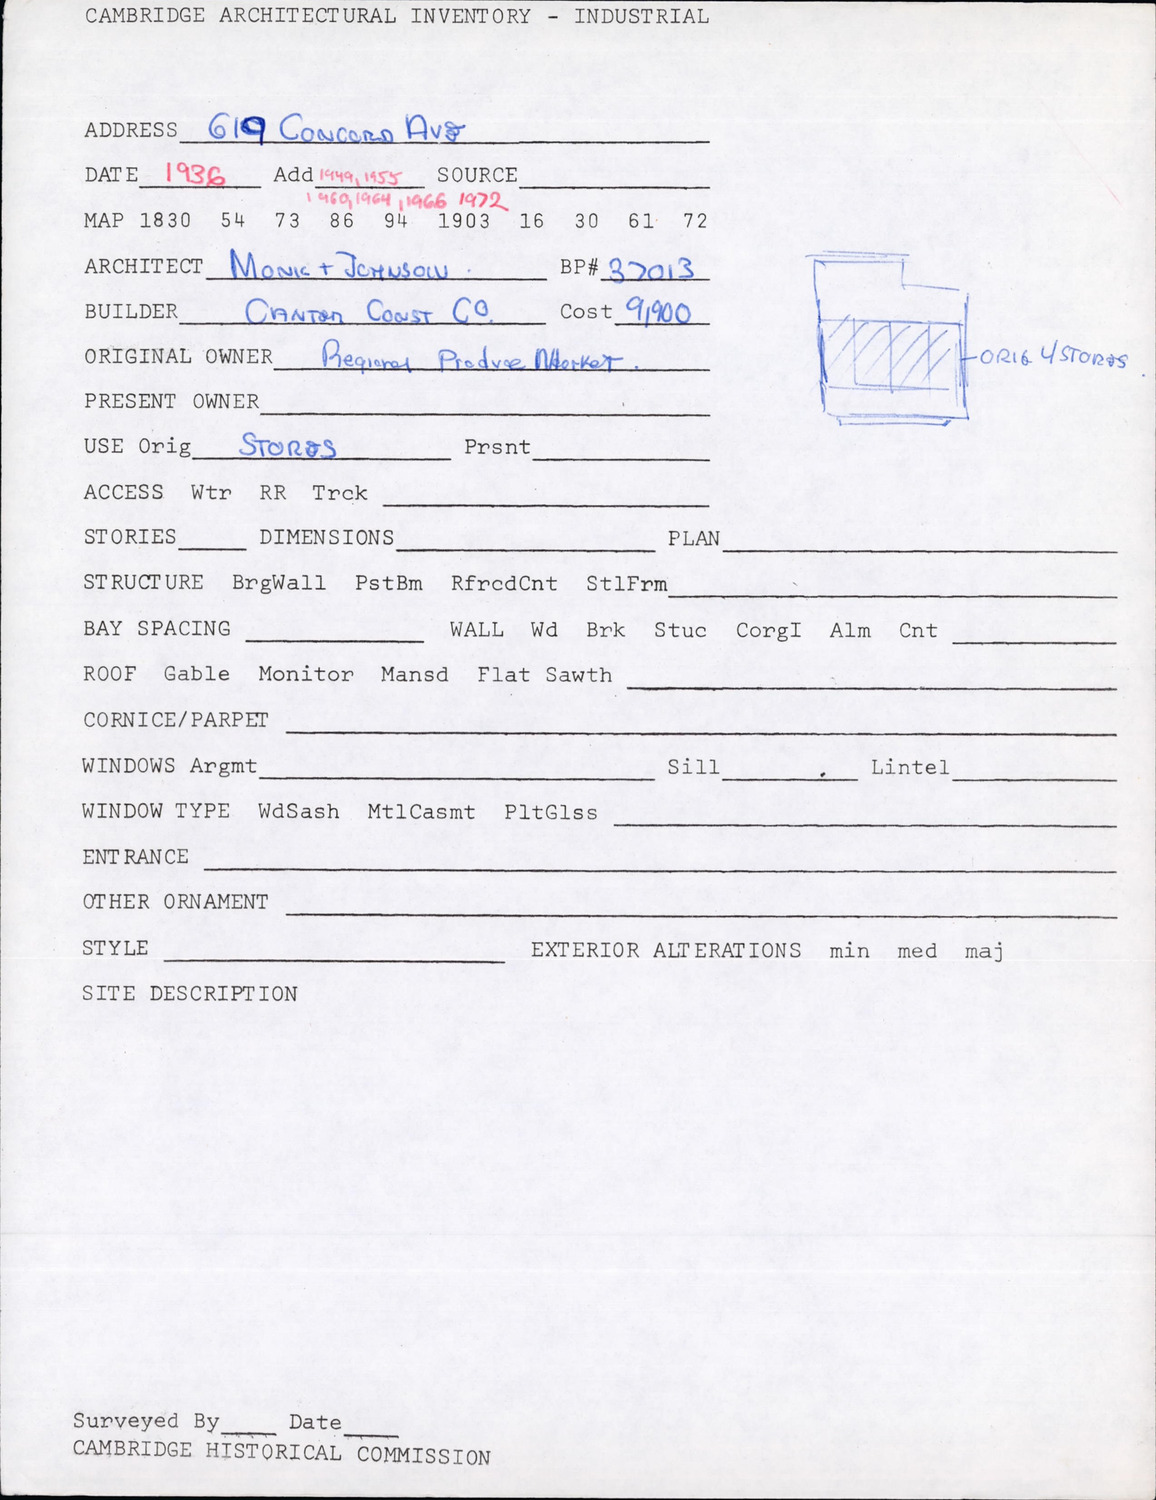 CAMBRIDGE ARCHITECTURAL INVENTORY - INDUSTRIAL
ADDRESS 619 Concord Ave
DATE 1936 Add 1949, 1955 SOURCE
1960, 1964, 1966 1972
MAP 1830 54 73 86 94 1903 16 30 61 72
ARCHITECT + Johnson BP# 37013
BUILDER Canton Const Co. Cost 9,900
ORIGINAL OWNER Regional Produce Market.
ORIG 4 STORES
PRESENT OWNER
USE Orig STORES Prsnt
ACCESS Wtr RR Trck
STORIES DIMENSIONS PLAN
STRUCTURE BrgWall PstBm RfrcdCnt StlFrm
BAY SPACING WALL Wd Brk Stuc CorgI Alm Cnt
ROOF Gable Monitor Mansd Flat Sawth
CORNICE/PARPET
WINDOWS Argmt Sill Lintel
WINDOW TYPE WdSash MtlCasmt PltGlss
ENTRANCE
OTHER ORNAMENT
STYLE EXTERIOR ALTERATIONS min med maj
SITE DESCRIPTION
Surveyed By Date
CAMBRIDGE HISTORICAL COMMISSION